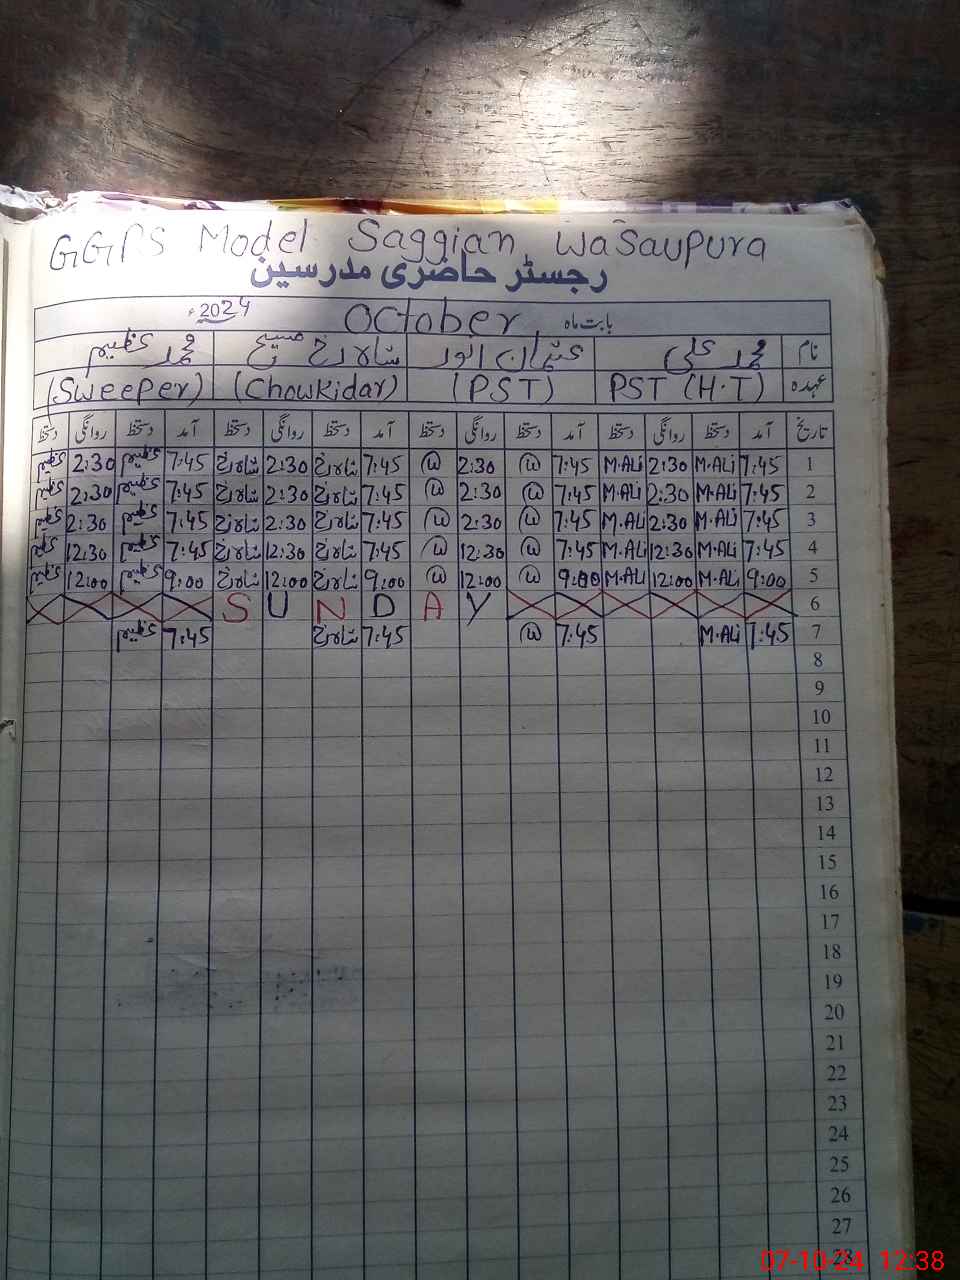 GGPS Model Saggian Wasaupura
رجسٹر حاضری مدرسین
بابت ماہ October 2024ء
نام محمد علی عثمان انور شاہ رخ مسیح محمد عظیم
عہدہ PST (H.T) (PST) (Chowkidar) (Sweeper)
تاریخ آمد دستخط روانگی دستخط آمد دستخط روانگی دستخط آمد دستخط روانگی دستخط آمد دستخط روانگی دستخط
1 7:45 M.ALi 2:30 M.ALi 7:45 2:30 7:45 شاہ رخ 2:30 شاہ رخ 7:45 عظیم 2:30 عظیم
2 7:45 M.ALi 2:30 M.ALi 7:45 2:30 7:45 شاہ رخ 2:30 شاہ رخ 7:45 عظیم 2:30 عظیم
3 7:45 M.ALi 2:30 M.ALi 7:45 2:30 7:45 شاہ رخ 2:30 شاہ رخ 7:45 عظیم 2:30 عظیم
4 7:45 M.ALi 12:30 M.ALi 7:45 12:30 7:45 شاہ رخ 12:30 شاہ رخ 7:45 عظیم 12:30 عظیم
5 9:00 M.ALi 12:00 M.ALi 9:00 12:00 9:00 شاہ رخ 12:00 شاہ رخ 9:00 عظیم 12:00 عظیم
6 SUNDAY
7 7:45 M.ALi 7:45 7:45 شاہ رخ 7:45 عظیم
8
9
10
11
12
13
14
15
16
17
18
19
20
21
22
23
24
25
26
27
28
07-10-24 12:38